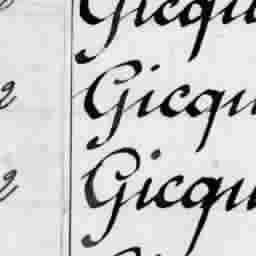 Gicqu
Gicqu
Gicqu